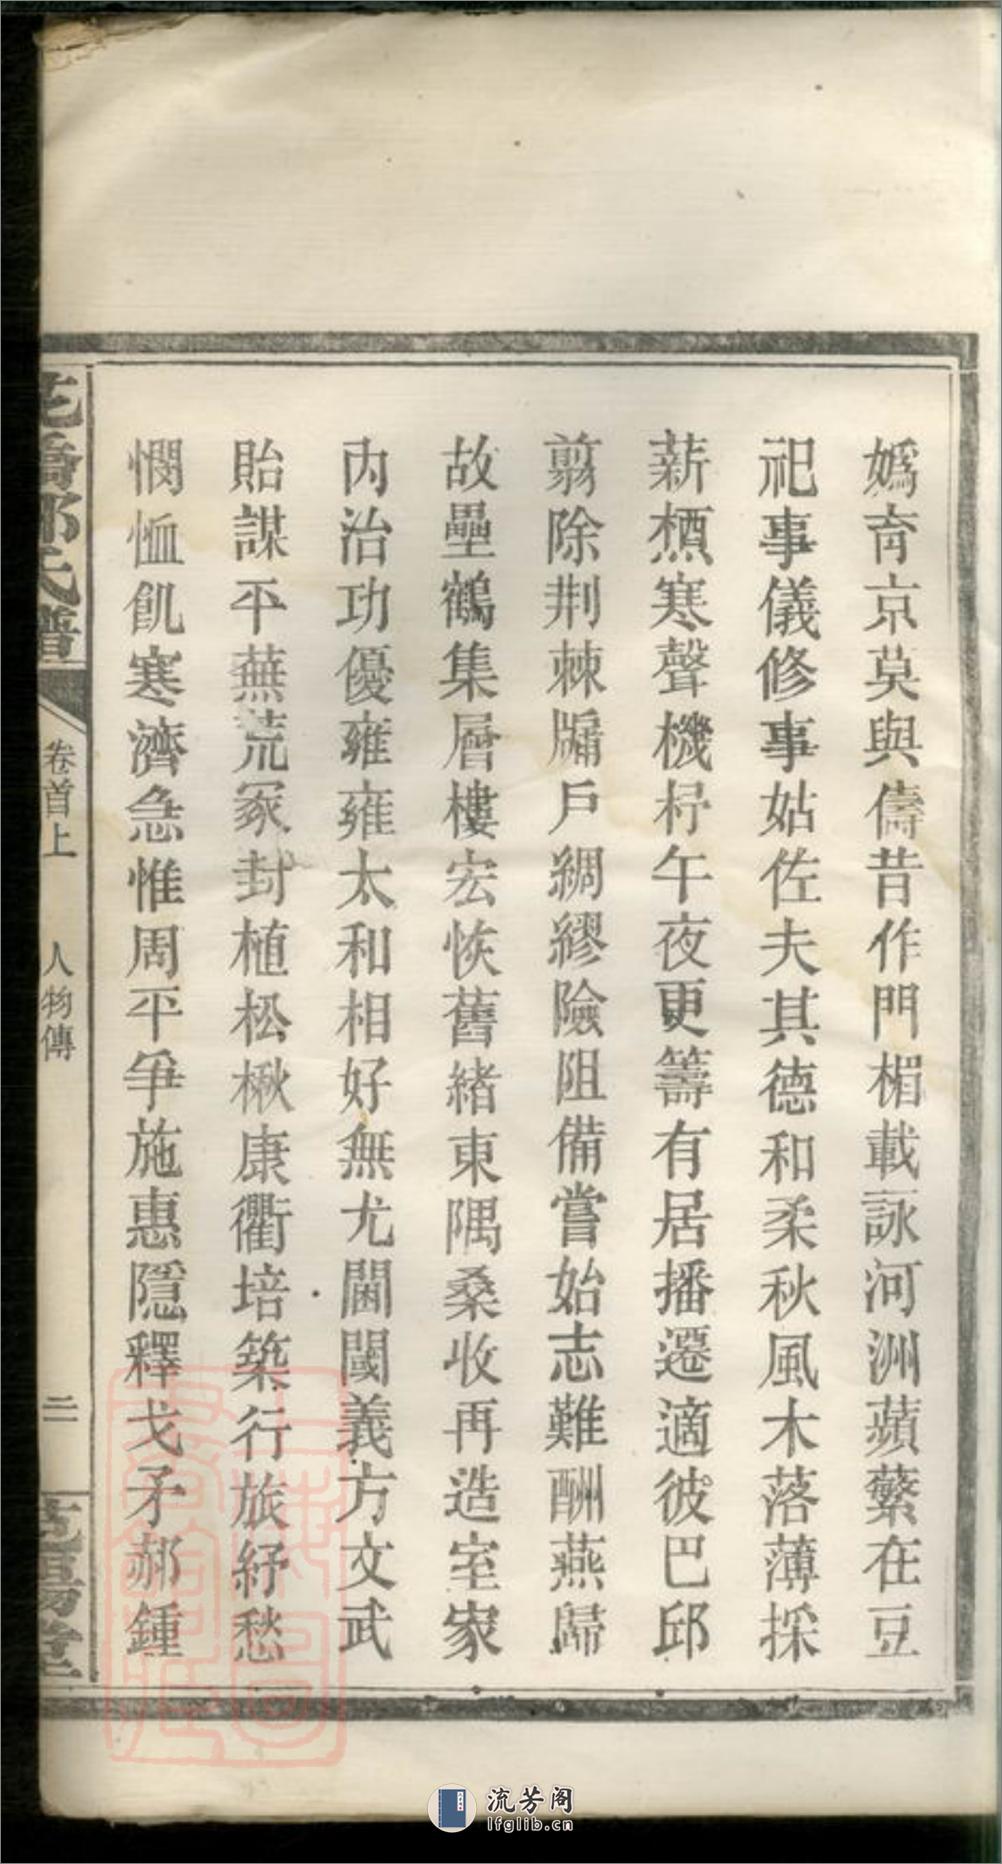 嬀育京莫與儔昔作門楣載詠河洲蘋蘩在豆
祀事儀修事姑佐夫其德和柔秋風木落薄採
薪槱寒聲機杼午夜更籌有居播遷適彼巴邱
翦除荆棘牖戶綢繆險阻備嘗始志難酬燕歸
故壘鶴集層樓宏恢舊緒東隅桑收再造室家
內治功優雍雍太和相好無尤閫閾義方文武
貽謀平蕪荒冢封植松楸康衢培築行旅紓愁
憫恤飢寒濟急惟周平爭施惠隱釋戈矛郝鍾
橋 氏譜
卷首上
人物傳
二
堂
流芳阁
lfglib.cn